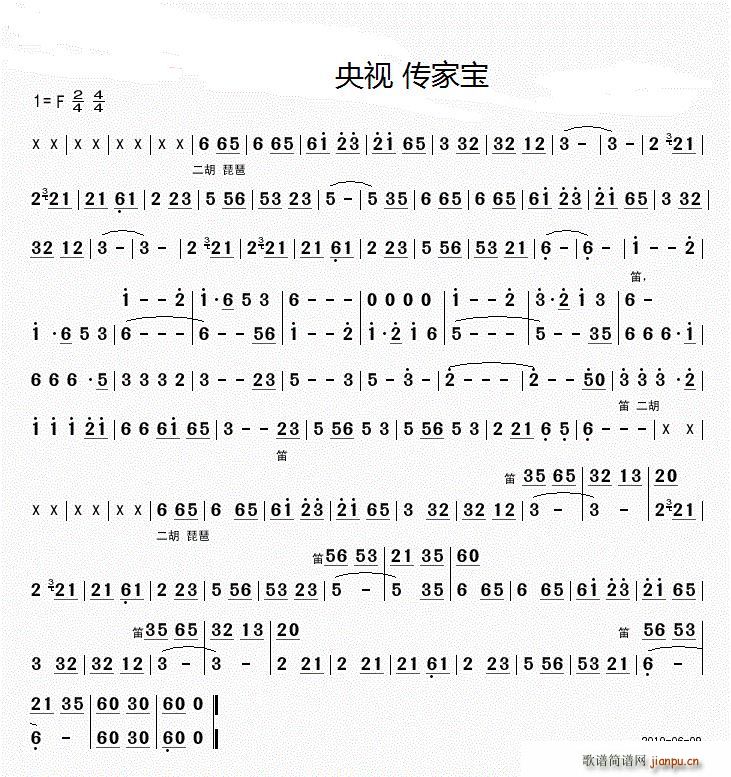 央视 传家宝
1= F 2/4 4/4
x x | x x | x x | x x | 6 65 | 6 65 | 61 23 | 21 65 | 3 32 | 32 12 | 3 - | 3 - | 2 3 21 |
二胡 琵琶
2 3 21 | 21 61 | 2 23 | 5 56 | 53 23 | 5 - | 5 35 | 6 65 | 6 65 | 61 23 | 21 65 | 3 32 |
32 12 | 3 - | 3 - | 2 3 21 | 2 3 21 | 21 61 | 2 23 | 5 56 | 53 21 | 6 - | 6 - | 1 - - 2
笛,
1 - - 2 | 1 · 6 5 3 | 6 - - - | 0 0 0 0 | 1 - - 2 | 3 · 2 1 3 | 6 -
1 · 6 5 3 | 6 - - - | 6 - - 56 | 1 - - 2 | 1 · 2 1 6 | 5 - - - | 5 - - 35 | 6 6 6 · 1
6 6 6 · 5 | 3 3 3 2 | 3 - - 23 | 5 - - 3 | 5 - 3 - | 2 - - - | 2 - - 50 | 3 3 3 · 2
笛 二胡
1 1 1 21 | 6 6 61 65 | 3 - - 23 | 5 56 5 3 | 5 56 5 3 | 2 21 6 5 | 6 - - - | x x
笛
笛 35 65 | 32 13 | 20
x x | x x | x x | 6 65 | 6 65 | 61 23 | 21 65 | 3 32 | 32 12 | 3 - | 3 - | 2 3 21
二胡 琵琶
笛 56 53 | 21 35 | 60
2 3 21 | 21 61 | 2 23 | 5 56 | 53 23 | 5 - | 5 35 | 6 65 | 6 65 | 61 23 | 21 65
笛 35 65 | 32 13 | 20 笛 56 53
3 32 | 32 12 | 3 - | 3 - | 2 21 | 2 21 | 21 61 | 2 23 | 5 56 | 53 21 | 6 -
21 35 | 60 30 | 60 0
6 - | 60 30 | 60 0
2010-06-09
歌谱简谱网 jianpu.cn